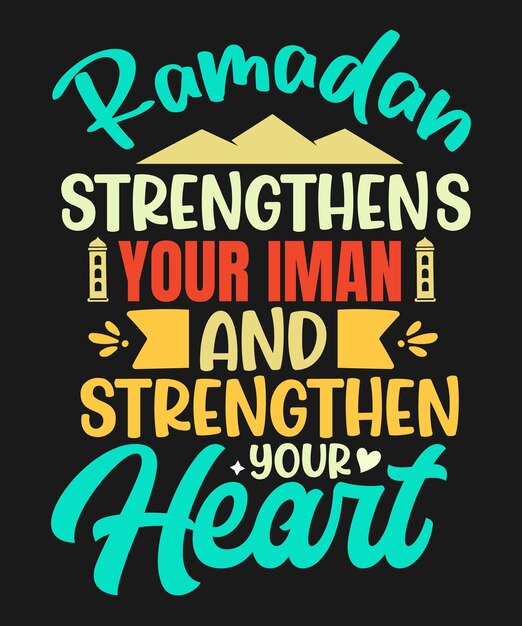 Ramadan
STRENGTHENS
YOUR IMAN
AND
STRENGTHEN
YOUR
Heart